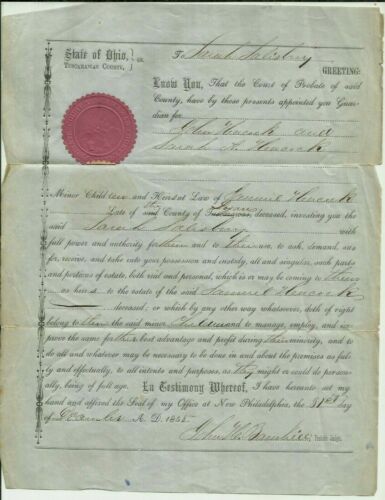 State of Ohio, } ss.
Tuscarawas County,
To Sarah Salisbury
GREETING:
Know You, That the Court of Probate of said
County, have by these presents appointed you Guar-
dian for
Hancock and
Sarah A. Hancock
Minor Children and Heirs at Law of Hancock
late of the County of deceased, investing you the
said Sarah Salisbury with
full power and authority for them and to their use, to ask, demand, sue
for, receive, and take into your possession and custody, all and singular, such parts
and portions of estate, both real and personal, which is or may be coming to them
as heirs to the estate of the said Samuel Hancock
deceased; or which by any other way whatsoever, doth of right
belong to them the said minor children and to manage, employ, and im-
prove the same for their best advantage and profit during their minority, and to
do all and whatever may be necessary to be done in and about the premises as ful-
ly and effectually, to all intents and purposes, as they might or could do person-
ally, being of full age. In Testimony Whereof, I have hereunto set my
hand and affixed the Seal of my Office at New Philadelphia, the 31st day
of December A. D. 1855
John H. Barnhill, Probate Judge.